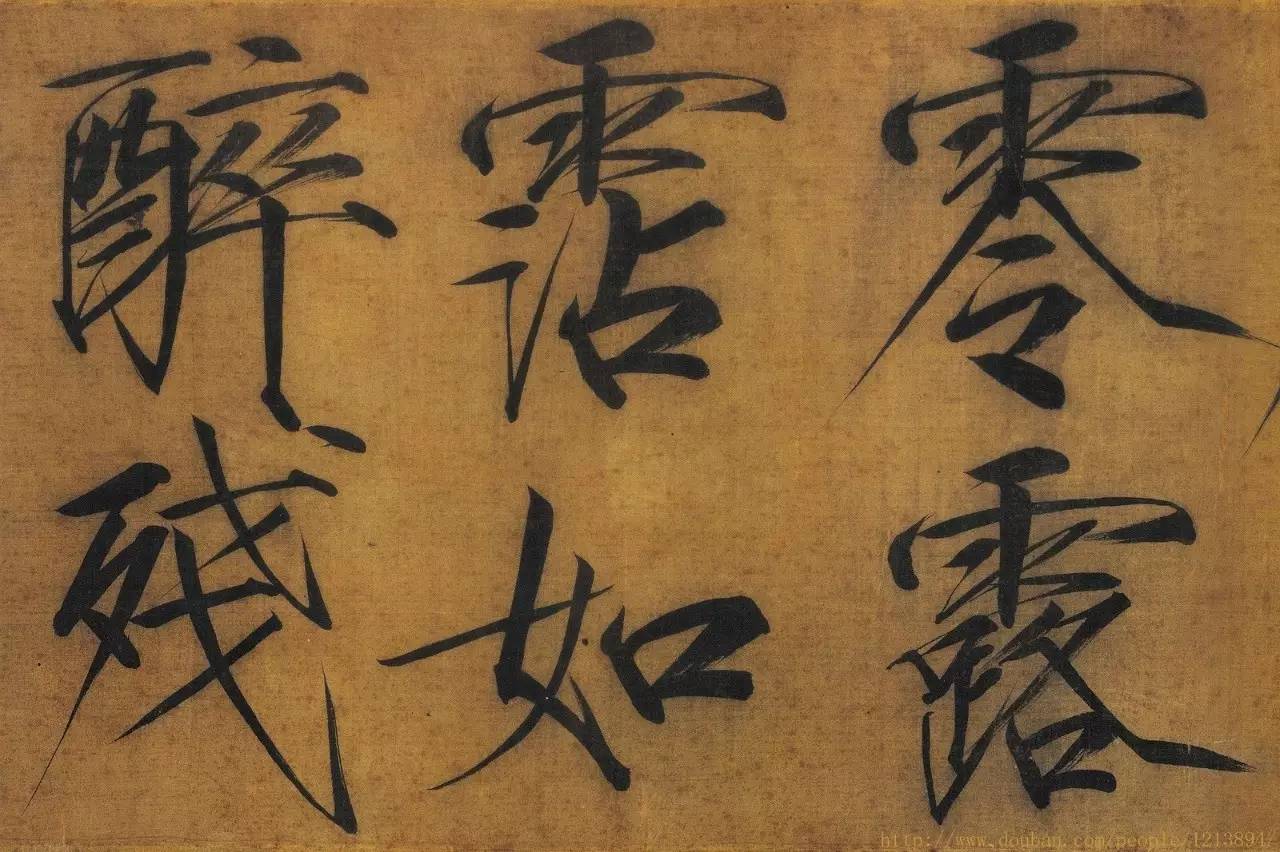 零露
霑如
醉残
http://www.douban.com/people/1213894/